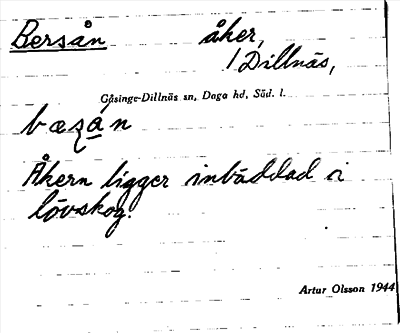 Bersån åker,
1 Dillnäs,
Gåsinge-Dillnäs sn, Daga hd, Söd. l.
Åkern ligger inbäddad i
lövskog.
Artur Olsson 1944